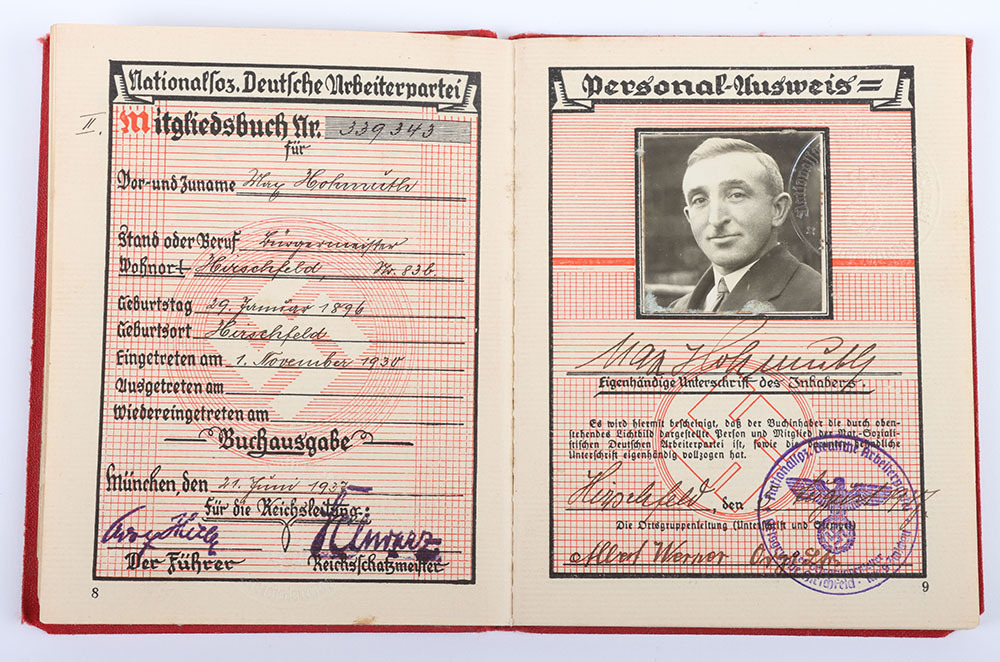 Nationalsoz. Deutsche Arbeiterpartei
II.
Mitgliedsbuch Nr. 339343
für
Vor- und Zuname Max Hohmuth
Stand oder Beruf Bürgermeister
Wohnort Hirschfeld, Nr. 83b.
Geburtstag 29. Januar 1896
Geburtsort Hirschfeld
Eingetreten am 1. November 1930
Ausgetreten am
Wiedereingetreten am
Buchausgabe
München, den 21. Juni 1937
Für die Reichsleitung:
Schwarz
Der Führer Reichsschatzmeister
8
Personal-Ausweis
Max Hohmuth
Eigenhändige Unterschrift des Inhabers.
Es wird hiermit bescheinigt, daß der Buchinhaber die durch oben-
stehendes Lichtbild dargestellte Person und Mitglied der Nat.-Soziali-
stischen Deutschen Arbeiterpartei ist, sowie die eigenhändliche
Unterschrift eigenhändig vollzogen hat.
Hirschfeld, den August 1937
Die Ortsgruppenleitung (Unterschrift und Stempel)
Albert Werner
Nationalsoz. Deutsche Arbeiterpartei
9